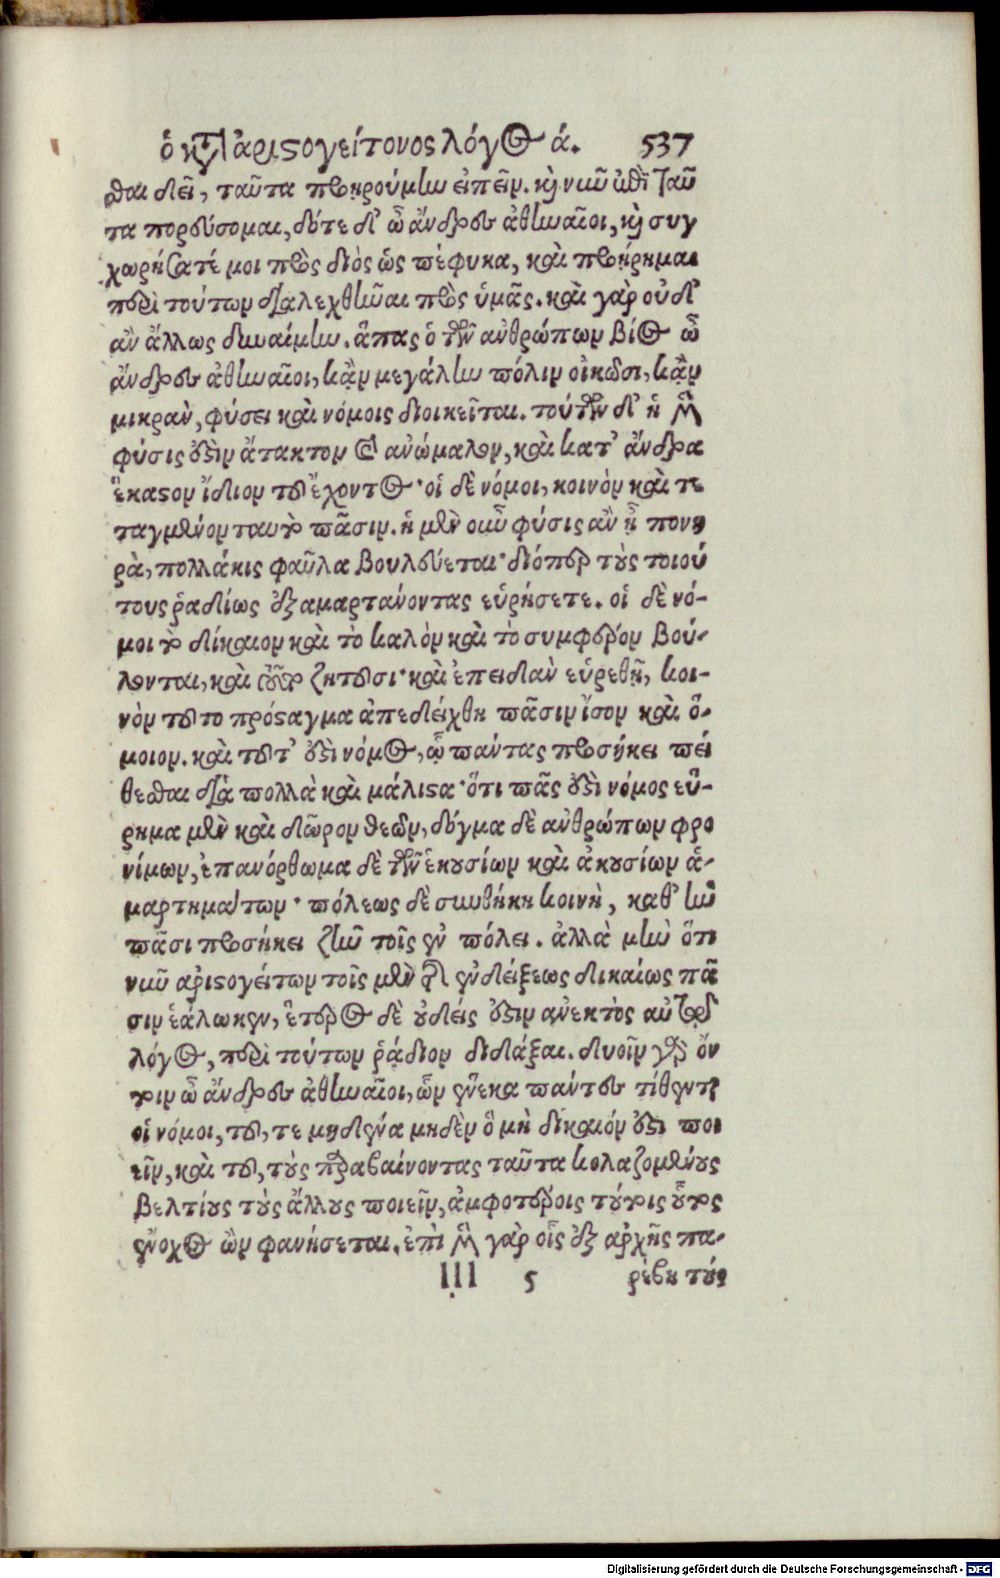 ὁ κτ' ἀριστογείτονος λόγος ά. 537
σθαι δεῖ, ταῦτα προῃρούμην εἰπεῖν. καὶ νῦν ἐπὶ ταῦ
τα πορεύσομαι, δότε δ' ὦ ἄνδρες ἀθηναῖοι, καὶ συγ
χωρήσατέ μοι πρὸς διὸς ὡς πέφυκα, καὶ προῄρημαι
περὶ τούτων διαλεχθῆναι πρὸς ὑμᾶς. καὶ γὰρ οὐδ'
ἂν ἄλλως δυναίμην. ἅπας ὁ τῶν ἀνθρώπων βίος ὦ
ἄνδρες ἀθηναῖοι, κἂν μεγάλην πόλιν οἰκῶσι, κἂν
μικρὰν, φύσει καὶ νόμοις διοικεῖται. τούτων δ' ἡ μὲν
φύσις ἐστὶν ἄτακτον καὶ ἀνώμαλον, καὶ κατ' ἄνδρα
ἕκαστον ἴδιον τοῦ ἔχοντος· οἱ δὲ νόμοι, κοινὸν καὶ τε
ταγμένον ταυτὸ πᾶσιν. ἡ μὲν οὖν φύσις ἂν ᾖ πονη
ρὰ, πολλάκις φαῦλα βουλεύεται· διόπερ τοὺς τοιού
τους ῥαδίως ἐξαμαρτάνοντας εὑρήσετε. οἱ δὲ νό-
μοι τὸ δίκαιον καὶ τὸ καλὸν καὶ τὸ συμφέρον βού-
λονται, καὶ τοῦτο ζητοῦσι· καὶ ἐπειδὰν εὑρεθῇ, κοι-
νὸν τοῦτο πρόσταγμα ἀπεδείχθη πᾶσιν ἴσον καὶ ὅ-
μοιον. καὶ τοῦτ' ἐστὶ νόμος, ᾧ πάντας προσήκει πεί
θεσθαι διὰ πολλὰ καὶ μάλιστα· ὅτι πᾶς ἐστὶ νόμος εὕ-
ρημα μὲν καὶ δῶρον θεῶν, δόγμα δὲ ἀνθρώπων φρο
νίμων, ἐπανόρθωμα δὲ τῶν ἑκουσίων καὶ ἀκουσίων ἁ-
μαρτημάτων· πόλεως δὲ συνθήκη κοινὴ, καθ' ἣν
πᾶσι προσήκει ζῆν τοῖς ἐν πόλει. ἀλλὰ μὴν ὅτι
νῦν ἀριστογείτων τοῖς μὲν τῆς ἐνδείξεως δικαίως πᾶ
σιν ἑάλωκεν, ἕτερος δὲ οὐδείς ἐστιν ἀνεκτὸς αὐτῷ
λόγος, περὶ τούτων ῥᾴδιον διδάξαι. δυοῖν γὰρ ὄν
τοιν ὦ ἄνδρες ἀθηναῖοι, ὧν ἕνεκα πάντες τίθενται
οἱ νόμοι, τοῦ, τε μηδένα μηδὲν ὃ μὴ δίκαιόν ἐστι ποι
εῖν, καὶ τοῦ, τοὺς παραβαίνοντας ταῦτα κολαζομένους
βελτίους τοὺς ἄλλους ποιεῖν, ἀμφοτέροις τούτοις οὗτος
ἔνοχος ὢν φανήσεται. ἐπὶ μὲν γὰρ οἷς ἐξ ἀρχῆς πα-
lll 5 ρέβη τοὺς
Digitalisierung gefördert durch die Deutsche Forschungsgemeinschaft - DFG